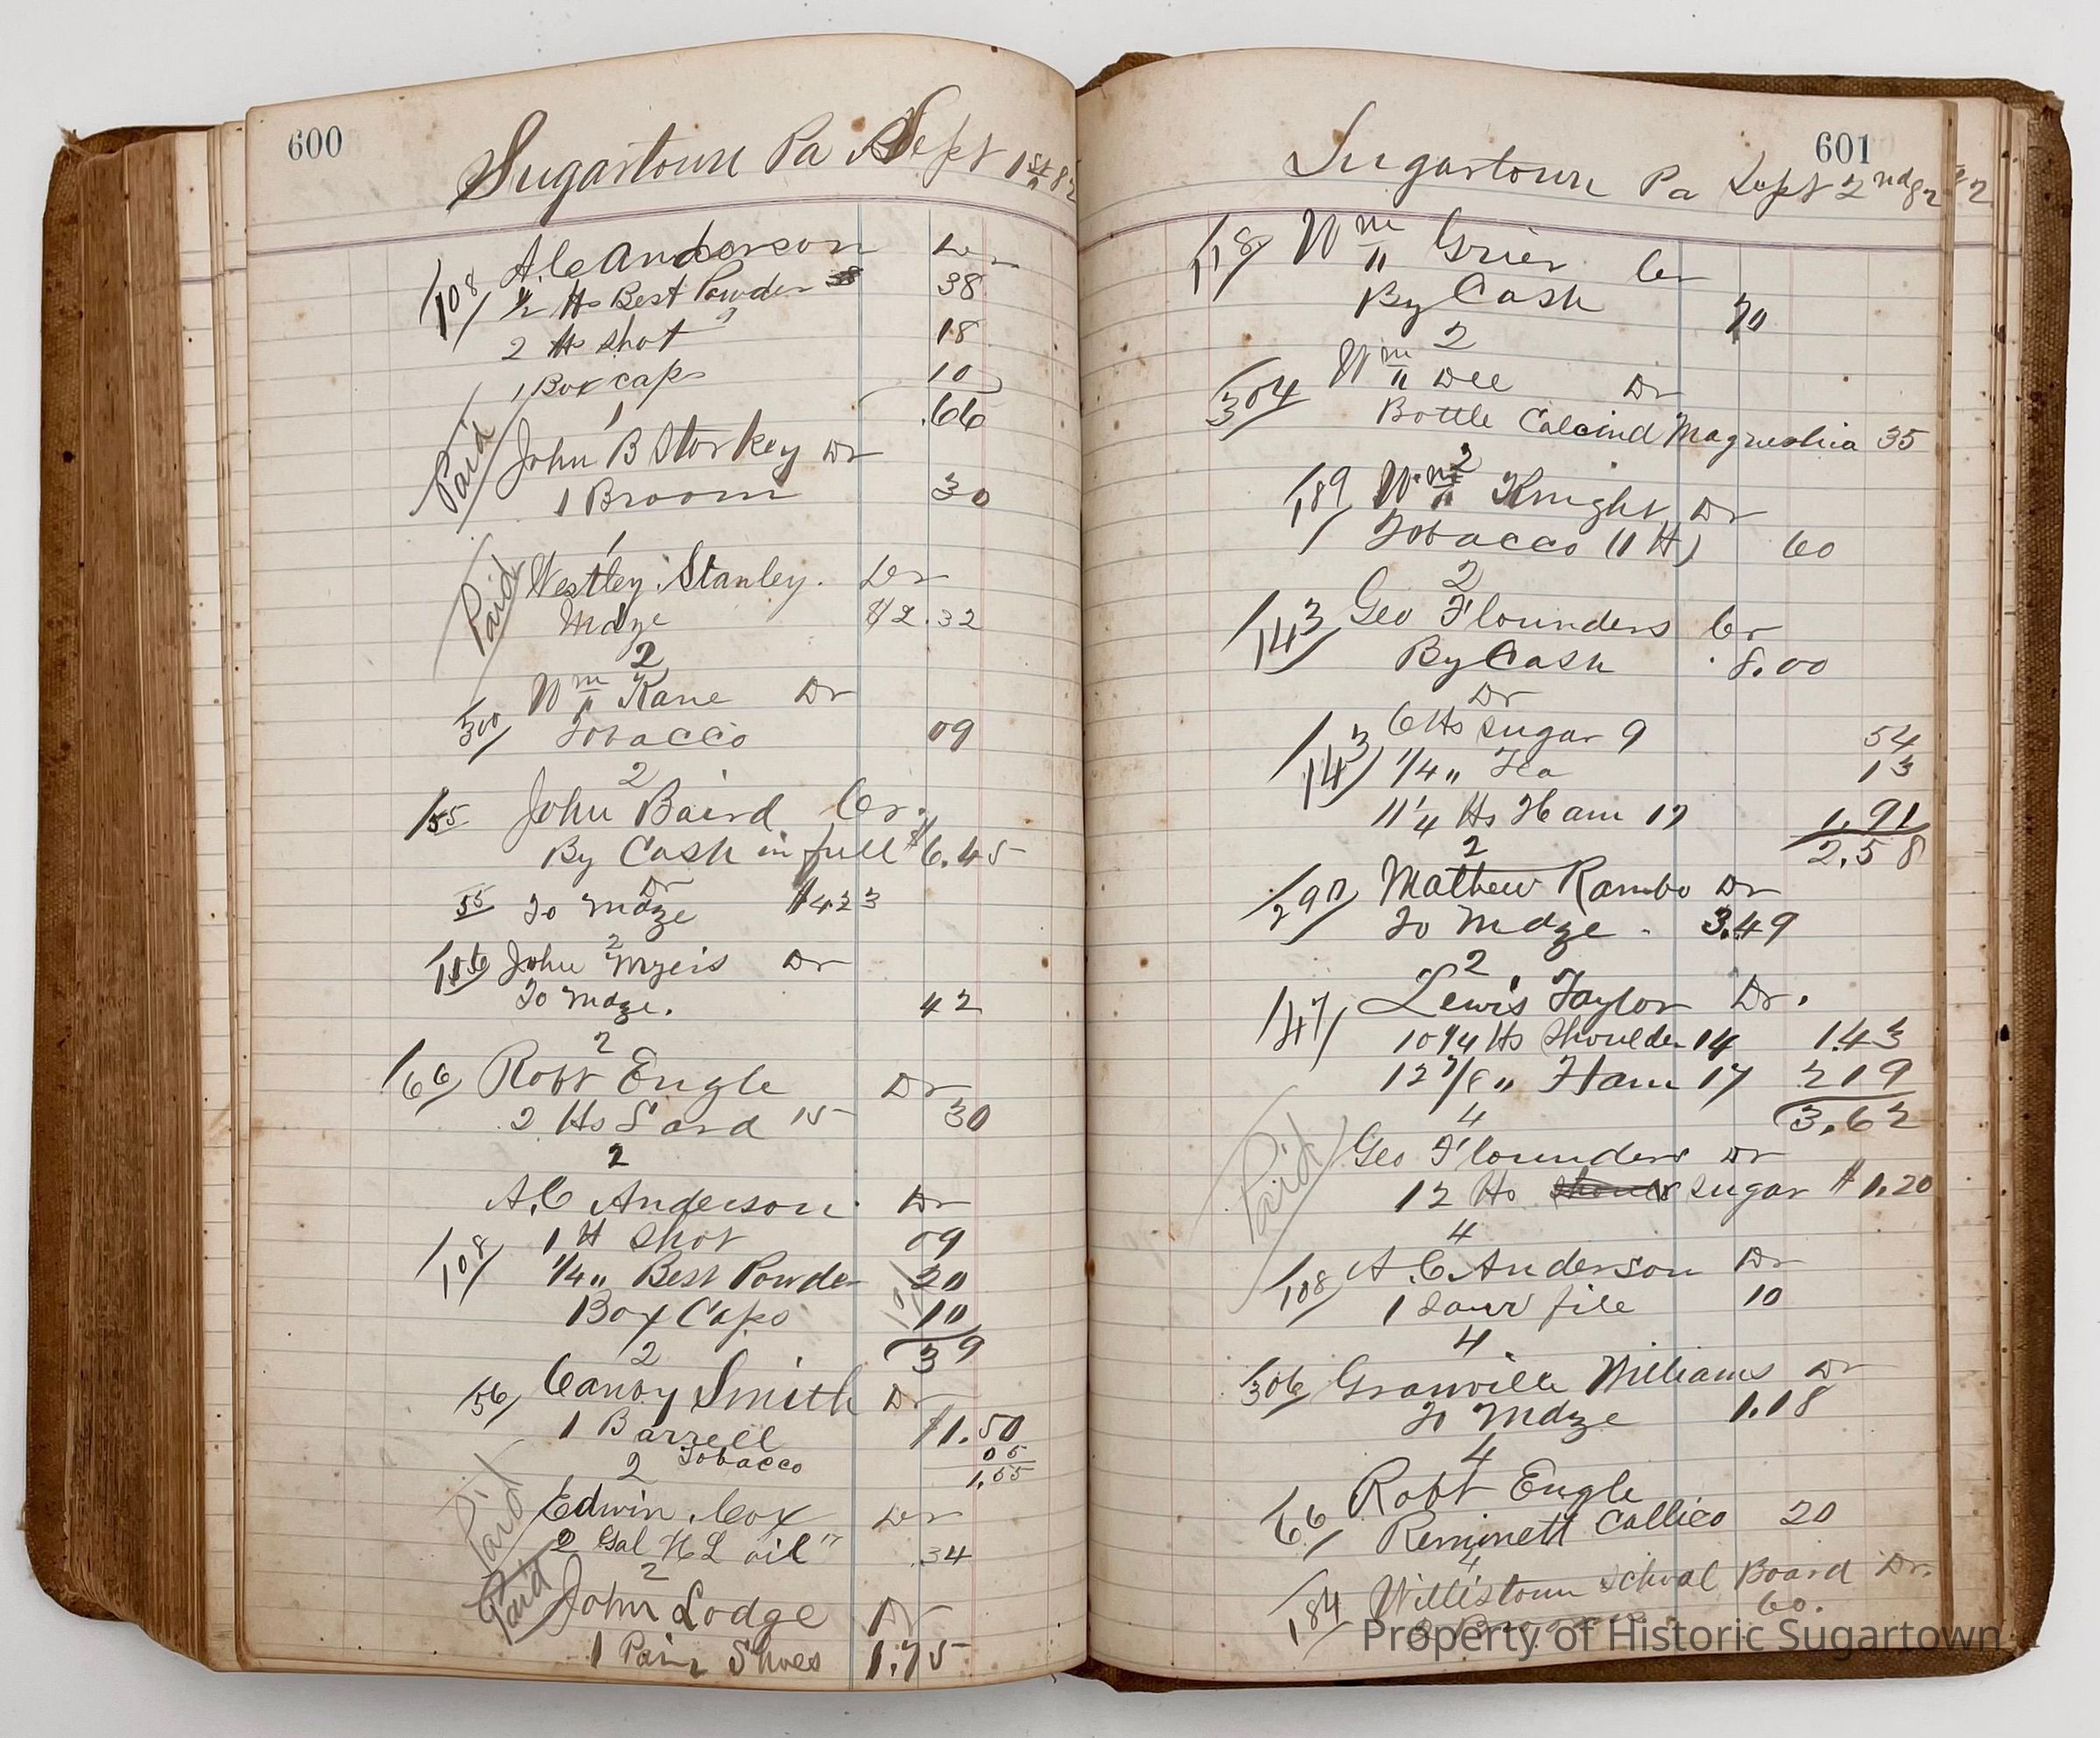 600
Sugartown Pa Sept 1st 82
108 A. C. Anderson Dr
1/2 lb Best Powder 38
2 lb Shot 9 18
1 Box caps 10
.66
1
Paid John B Storkey Dr
1 Broom 30
1
Paid Westley Stanley. Dr
Mdze $2.32
2
Wm Kane Dr
300 Tobacco 09
2
55 John Baird Cr.
By Cash in full $6.45
Dr
55 To Mdze $4 23
2
John Myers Dr
To Mdze. 42
2
66 Robt Engle Dr
2 lbs Lard 15 30
2
A. C Anderson Dr
108 1 lb Shot 09
1/4 " Best Powder 20
Box Caps 10
39
2
56 Canby Smith Dr
1 Barrell $1.50
Tobacco 05
2 1.55
Paid Edwin Cox Dr
2 Gal H L oil 17 .34
2
Paid John Lodge Dr
1 Pair Shoes 1.75
601
Sugartown Pa Sept 2nd 82
118 Wm Grier Cr
By Cash 70
2
304 Wm Dee Dr
Bottle Calcind Magneshia 35
2
189 Wm Knight Dr
Tobacco (1 lb) 60
2
143 Geo Flounders Cr
By Cash 8.00
Dr
6 lbs Sugar 9 54
143 1/4 " Tea 13
11 1/4 lbs Ham 17 1.91
2.58
2
297 Mathew Rambo Dr
To Mdze 3.49
2
47 Lewis Taylor Dr.
10 1/4 lbs Shoulder 14 1.43
12 7/8 " Ham 17 2 19
3.62
4
Paid Geo Flounders Dr
12 lbs Sugar $1.20
4
108 A. C. Anderson Dr
1 Saw file 10
4
306 Granville Williams Dr
To Mdze 1.18
4
66 Robt Engle
Remnett Callico 20
4
184 Willistown School Board Dr.
60.
Property of Historic Sugartown